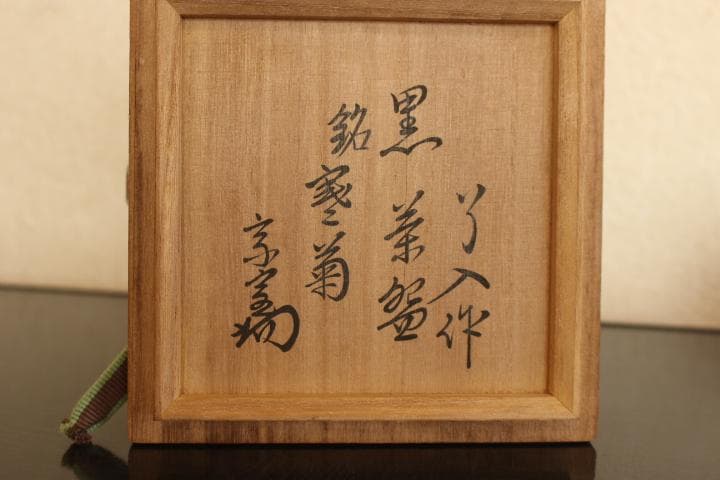 了入作
黒茶盌
銘寒菊
宗室